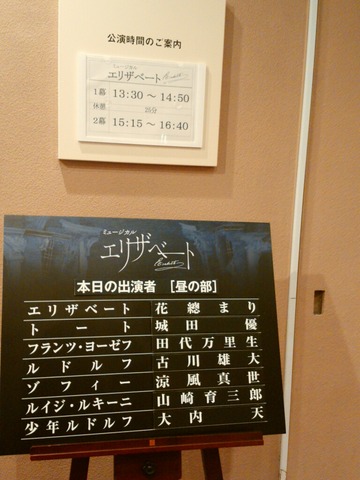 公演時間のご案内
ミュージカル
エリザベート
1幕 13:30 ～ 14:50
休憩 25分
2幕 15:15 ～ 16:40
ミュージカル
エリザベート
Elisabeth
本日の出演者 [昼の部]
エリザベート 花總まり
トート 城田優
フランツ・ヨーゼフ 田代万里生
ルドルフ 古川雄大
ゾフィー 涼風真世
ルイジ・ルキーニ 山崎育三郎
少年ルドルフ 大内天